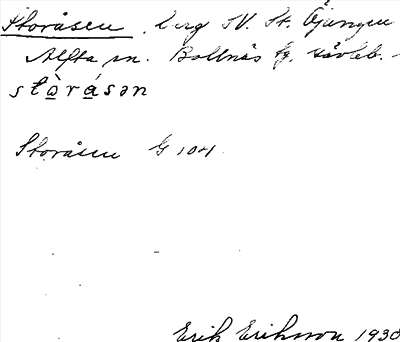 Storåsen, berg SV. St. Öjungen
Alfta sn. Bollnäs tg. Gävleb.
stòrásən
Storåsen G 104
Erik Eriksson 1930